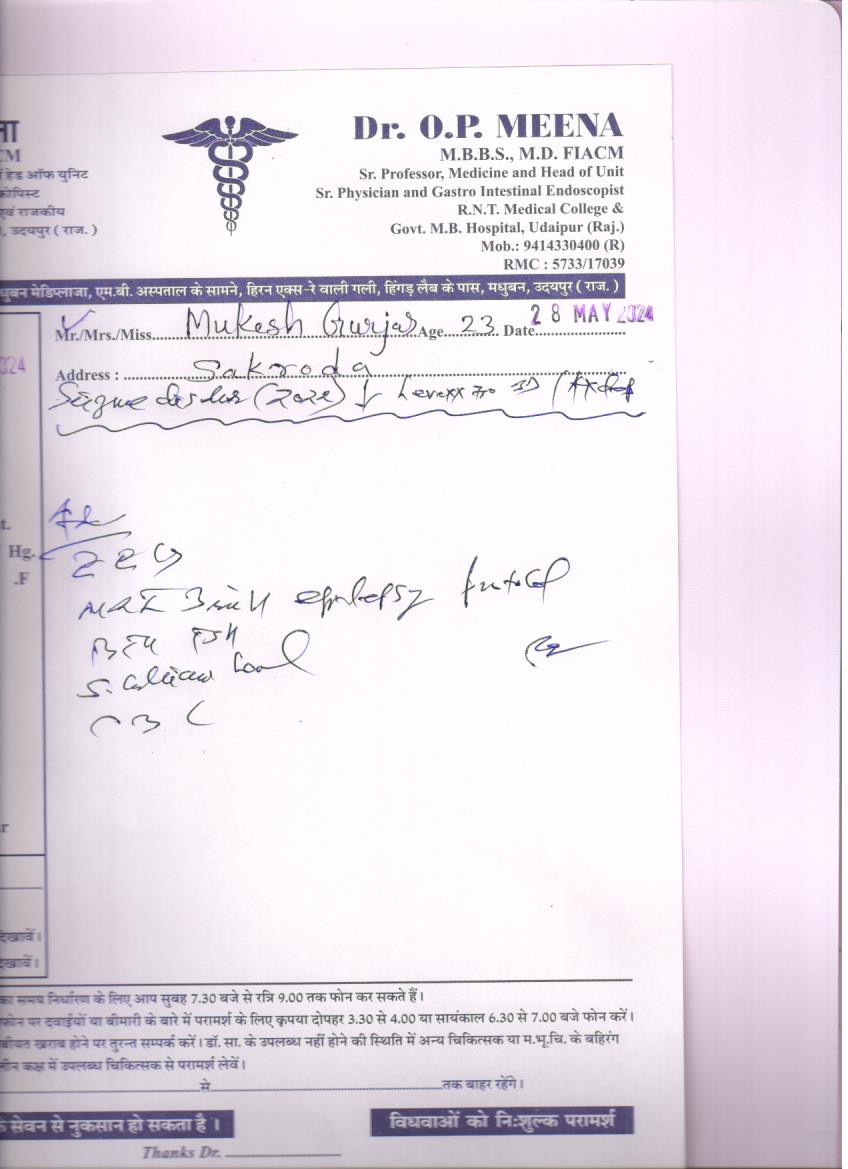 ना
CM
हेड ऑफ युनिट
कोपिस्ट
एवं राजकीय
, उदयपुर ( राज. )
Dr. O.P. MEENA
M.B.B.S., M.D. FIACM
Sr. Professor, Medicine and Head of Unit
Sr. Physician and Gastro Intestinal Endoscopist
R.N.T. Medical College &
Govt. M.B. Hospital, Udaipur (Raj.)
Mob.: 9414330400 (R)
RMC : 5733/17039
धुबन मेडिप्लाजा, एम.बी. अस्पताल के सामने, हिरन एक्स-रे वाली गली, हिंगड़ लैब के पास, मधुबन, उदयपुर ( राज. )
Mr./Mrs./Miss Mukesh Gurjar Age 23 Date 28 MAY 2024
024
Address : Sakroda
t.
Hg.
.F
MRI Brain epilepsy protocol
TSH
S. Calcium
CBC
r
देखावें।
देखावें।
का समय निर्धारण के लिए आप सुबह 7.30 बजे से रात्रि 9.00 तक फोन कर सकते हैं।
फोन पर दवाईयों या बीमारी के बारे में परामर्श के लिए कृपया दोपहर 3.30 से 4.00 या सायंकाल 6.30 से 7.00 बजे फोन करें।
बीयत खराब होने पर तुरन्त सम्पर्क करें। डॉ. सा. के उपलब्ध नहीं होने की स्थिति में अन्य चिकित्सक या म.भू.चि. के बहिरंग
लीन कक्ष में उपलब्ध चिकित्सक से परामर्श लेवें।
से तक बाहर रहेंगे।
के सेवन से नुकसान हो सकता है।
विधवाओं को निःशुल्क परामर्श
Thanks Dr.